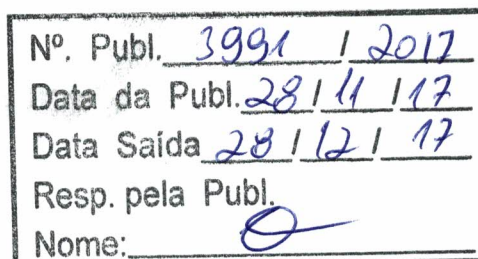 Nº. Publ. 3991 / 2017
Data da Publ. 28 / 11 / 17
Data Saída 28 / 12 / 17
Resp. pela Publ.
Nome: